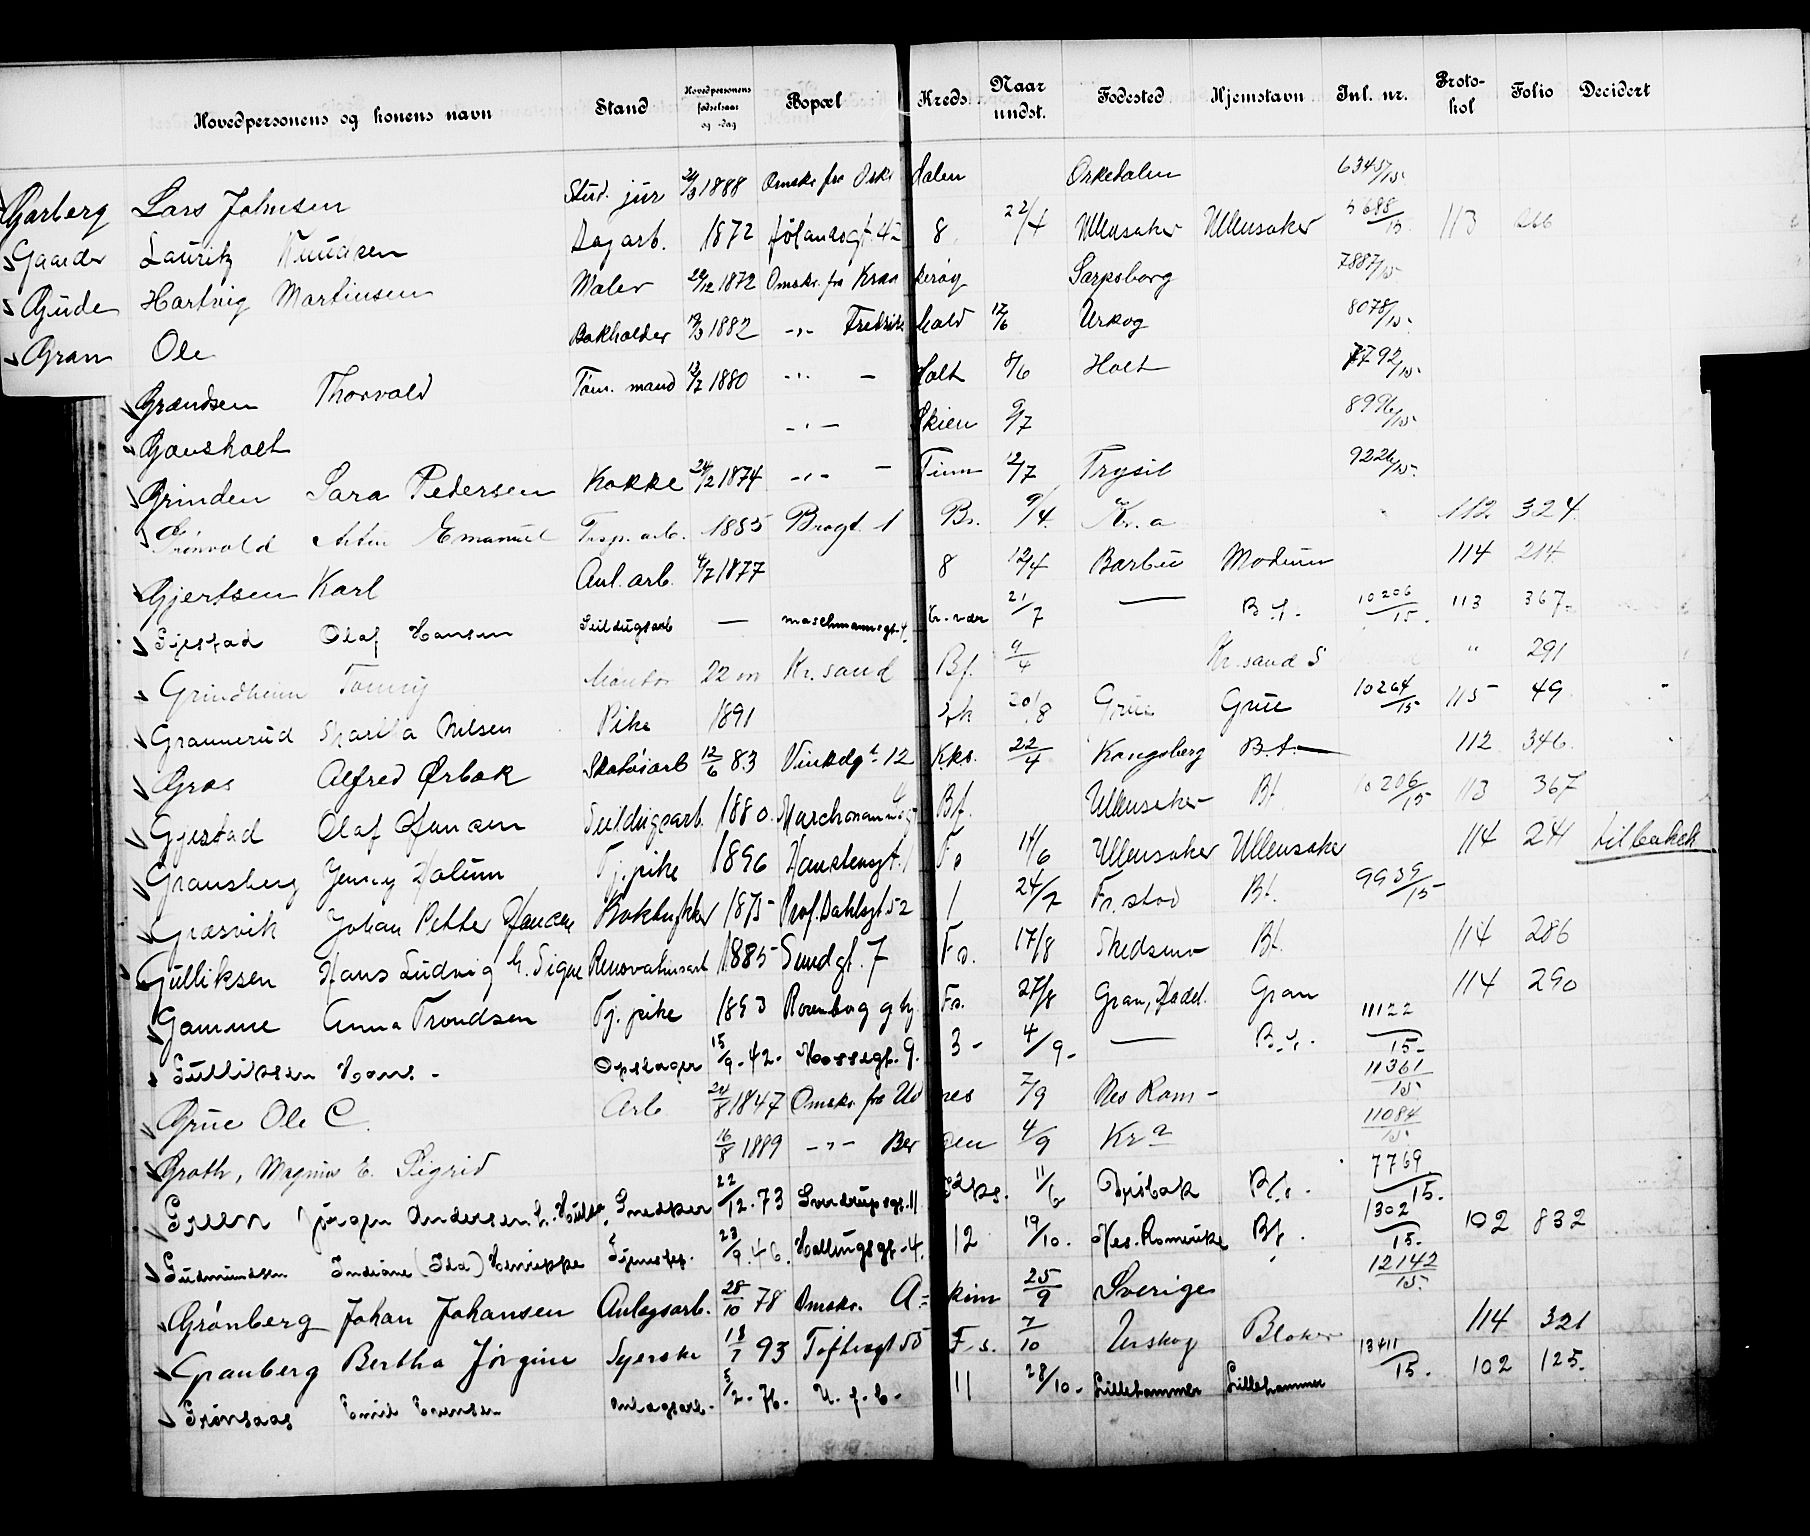 Hovedpersonens og konens navn Stand Hovedpersonens fødselsaar og -dag Bopæl Kreds Naar undst. Fødested Hjemstavn Inl. nr. Protokol Folio Decidert
Garberg Lars Johnsen Stud. jur 1888 Omsk. fra Orkedalen Orkedalen 6345/15
Gaarder Lauritz Knudsen Dagarb. 1872 8 22/4 Ullensaker Ullensaker 5688/15 113 266
Gude Hartvig Martinsen Maler 1872 Omsk. fra Kragerøy Sarpsborg 7887/15
Gran Ole Bokholder 1882 -"- Fredrikshald 12/6 Urskog 8078/15
Grændsen Thorvald Tøm. mand 1880 -"- Holt 8/6 Holt 7792/15
Gausholt -"- Skien 9/7 8996/15
Grinden Sara Pedersen Kokke 24/2 1874 -"- Tinn 12/7 Trysil 9226/15
Grönvold Emanuel 1885 Brogt. 1 Bs. 9/4 Kr.a 112 324
Gjertsen Karl Anl. arb. 4/7 1877 8 12/4 Barbu Modum 114 214
Gjestad Olaf Hansen Seildugsarb — 21/7 — B.f. 10206/15 113 367
Grindheim Tomy Montør 22 m Kr. sand Bf. 9/4 Kr. sand S " 291
Grannerud Martha Nilsen Pike 1891 20/8 Grue Grue 10264/15 115 49
Gros Alfred Ørbak Skotøiarb 12/6 83 12 Kks. 22/4 Kongsberg B.f. 112 346
Gjestad Olaf Hansen Seildugsarb. 1880. Bf. Ullensaker Bf. 10206/15 113 367
Gransberg Jenny Halum Tj. pike 1896 Fs 14/6 Ullensaker Ullensaker 114 241 tilbakek
Græsvik Johan Petter Hansen Boktrykker 1875 Prof. Dahlsgt. 52 1 24/7 Fr. stad Bf. 9939/15
Gulliksen Hans Ludvig h. Signe Renovationsarb 1885 Sundgt. 7 Fs. 17/8 Skedsmo Bf. 114 286
Gamme Anna Trondsen Tj. pike 1893 Fs. 27/8 Gran, Hadel. Gran 114 290
Gulliksen Hans. Opslager 15/9-42- 9. 3 - 4/9- — B.f. 11122/15
Grue Ole C. Arb 24/8 1847 Omsk. fra Udnes 7/9 Nes Rom - 11361/15
Groth, Magna E. Sigrid 16/8 1889 -"- Bergen 4/9 Kra 11084/15
Jørgen Andersen h. Hulda, Snedker 22/12-73 Sverdrupsgt. 11 11/6 Drøbak B.f. 7769/15.
Gudmundsen Indiane (Ida) Henrikke 23/9.46. 4. 12 19/10. Nes. Romerike Bf. 1302/15. 102 832
Grönberg Johan Johansen Anlagsarb. 28/10 78 Omsk. Askim 25/9 Sverige 12142/15.
Granberg Bertha Jørgine Syerske 18/7 93 Toftesgt 55 F.s. 7/10 Urskog Blaker 114 321
Grönsaas Emil Evensen Anlagsarb. 5/2-76. U. f. b. 11 28/10- Lillehammer Lillehammer 13411/15. 102 125.